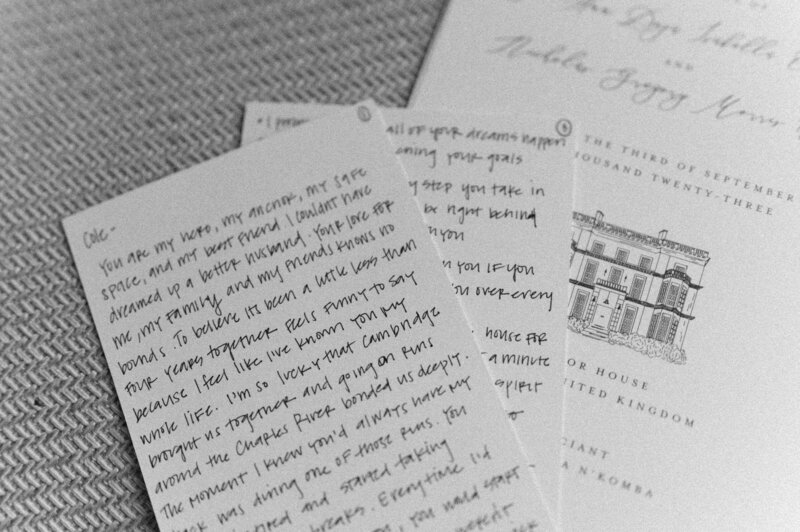 ①
Cole-
You are my hero, my anchor, my safe
space, and my best friend. I couldn't have
dreamed up a better husband. Your love for
me, my family and my friends knows no
bounds. To believe it's been a little less than
four years together feels funny to say
because I feel like I've known you my
whole life. I'm so lucky that Cambridge
brought us together and going on runs
around the Charles River bonded us deeply.
The moment I knew you'd always have my
back was during one of those runs. You
and started taking
breaks. Everytime I'd
, you would start
weren't
• I
all of your dreams happen
your goals
step you take in
be right behind
you
you if you
you over every
house for
a minute
spirit
AND
Gregory
THE THIRD OF SEPTEMBER
THOUSAND TWENTY-THREE
OR HOUSE
UNITED KINGDOM
CIANT
A N'KOMBA